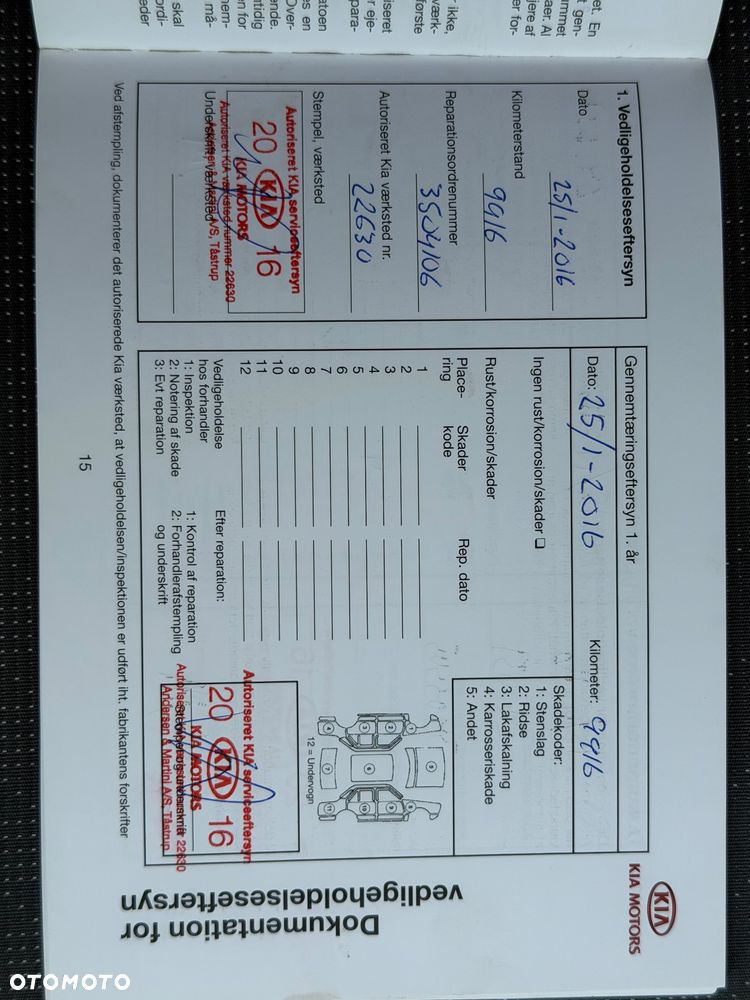 KIA
KIA MOTORS
Dokumentation for
vedligeholdelseseftersyn
1. Vedligeholdelseseftersyn
Dato
25/1-2016
Kilometerstand
9916
Reparationsordrenummer
3504106
Autoriseret Kia værksted nr.
22630
Stempel, værksted
Autoriseret KIA serviceeftersyn
20 KIA 16
KIA MOTORS
Autoriseret KIA værksted nummer 22630
Andersen & Martini A/S, Tåstrup
Underskrift, værksted
Gennemtæringseftersyn 1. år
Dato: 25/1-2016
Kilometer: 9916
Ingen rust/korrosion/skader ❏
Rust/korrosion/skader
Skadekoder:
1: Stenslag
2: Ridse
3: Lakafskalning
4: Karrosseriskade
5: Andet
Place-
ring
Skader
kode
Rep. dato
1
2
3
4
5
6
7
8
9
10
11
12
12 = Undervogn
Vedligeholdelse
hos forhandler
1: Inspektion
2: Notering af skade
3: Evt reparation
Efter reparation:
1: Kontrol af reparation
2: Forhandlerafstempling
og underskrift
Autoriseret KIA serviceeftersyn
20 KIA 16
KIA MOTORS
Andersen & Martini A/S, Tåstrup
Ved afstempling, dokumenterer det autoriserede Kia værksted, at vedligeholdelsen/inspektionen er udført iht. fabrikantens forskrifter
15
OTOMOTO